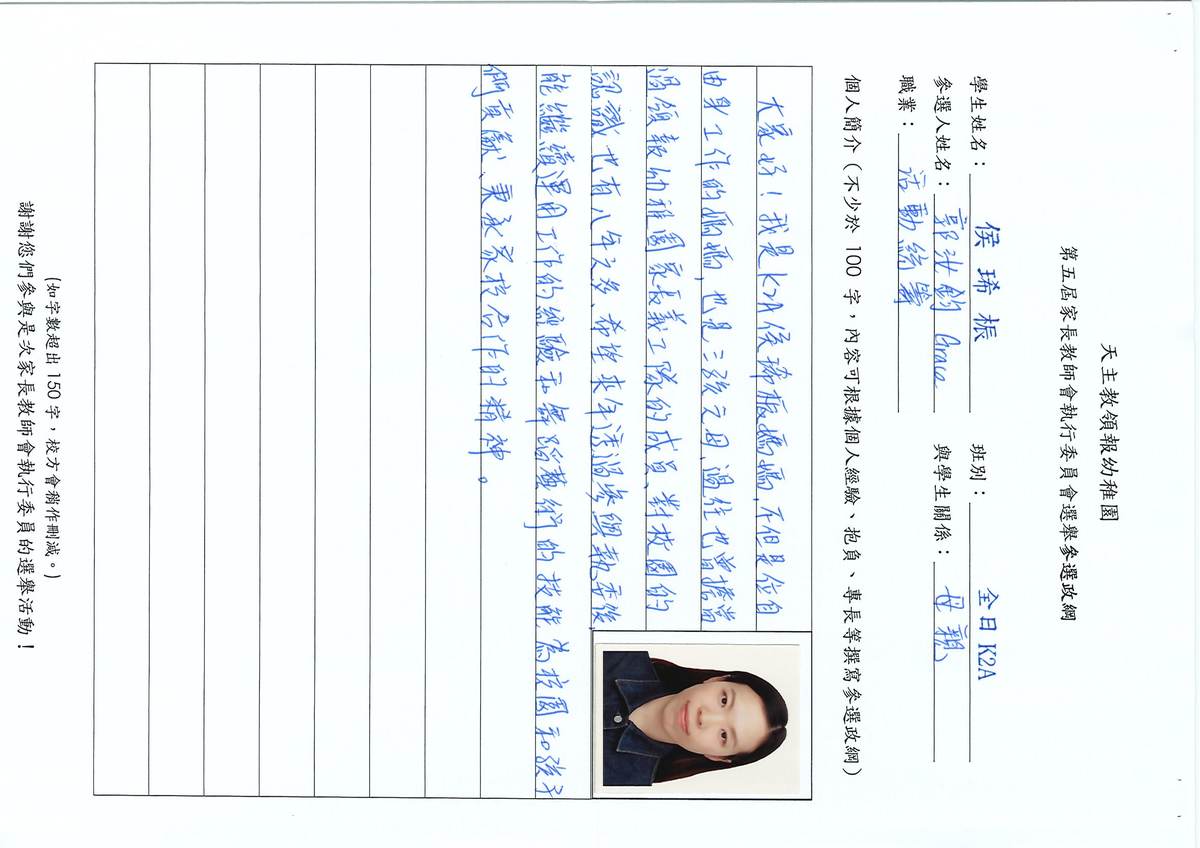 天主教領報幼稚園
第五屆家長教師會執行委員會選舉參選政綱
學生姓名： 侯琋桭 班別： 全日K2A
參選人姓名： 郭汝鈞 Grace 與學生關係： 母親
職業： 活動統籌
個人簡介（不少於 100 字，內容可根據個人經驗、抱負、專長等撰寫參選政綱）
大家好！我是K2A侯琋桭媽媽，不但是位自
由身工作的媽媽，也是三孩之母，過往也曾擔當
過領報幼稚園家長義工隊的成員、對校園的
認識也有八年之多、希望來年透過參與執委後
能繼續運用工作的經驗和舞蹈藝術的技能為校園和孩子
們貢獻、秉承家校合作的精神。
(如字數超出 150 字，校方會稍作刪減。)
謝謝您們參與是次家長教師會執行委員的選舉活動！